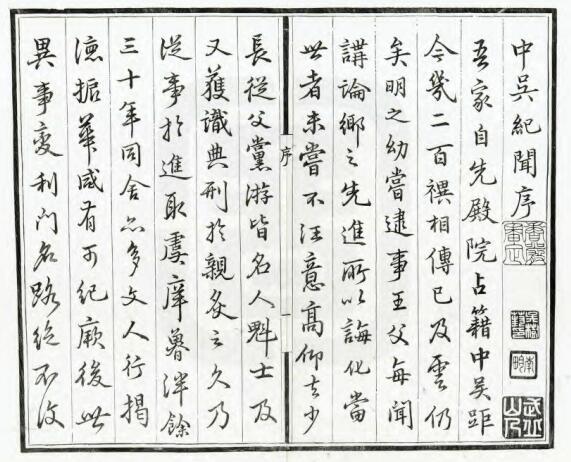 中吳紀聞序
吾家自先殿院占籍中吳距
今幾二百禩相傳已及雲仍
矣明之幼嘗逮事王父每聞
講論鄉之先進所以誨化當
世者未嘗不注意高仰之少
序
一
長從父黨游皆名人魁士及
又獲識典刑於親炙之久乃
從事於進取虞庠魯泮餘
三十年同舍亦多文人行揭
德振華咸有可紀厥後世
異事變利門名路絕不復